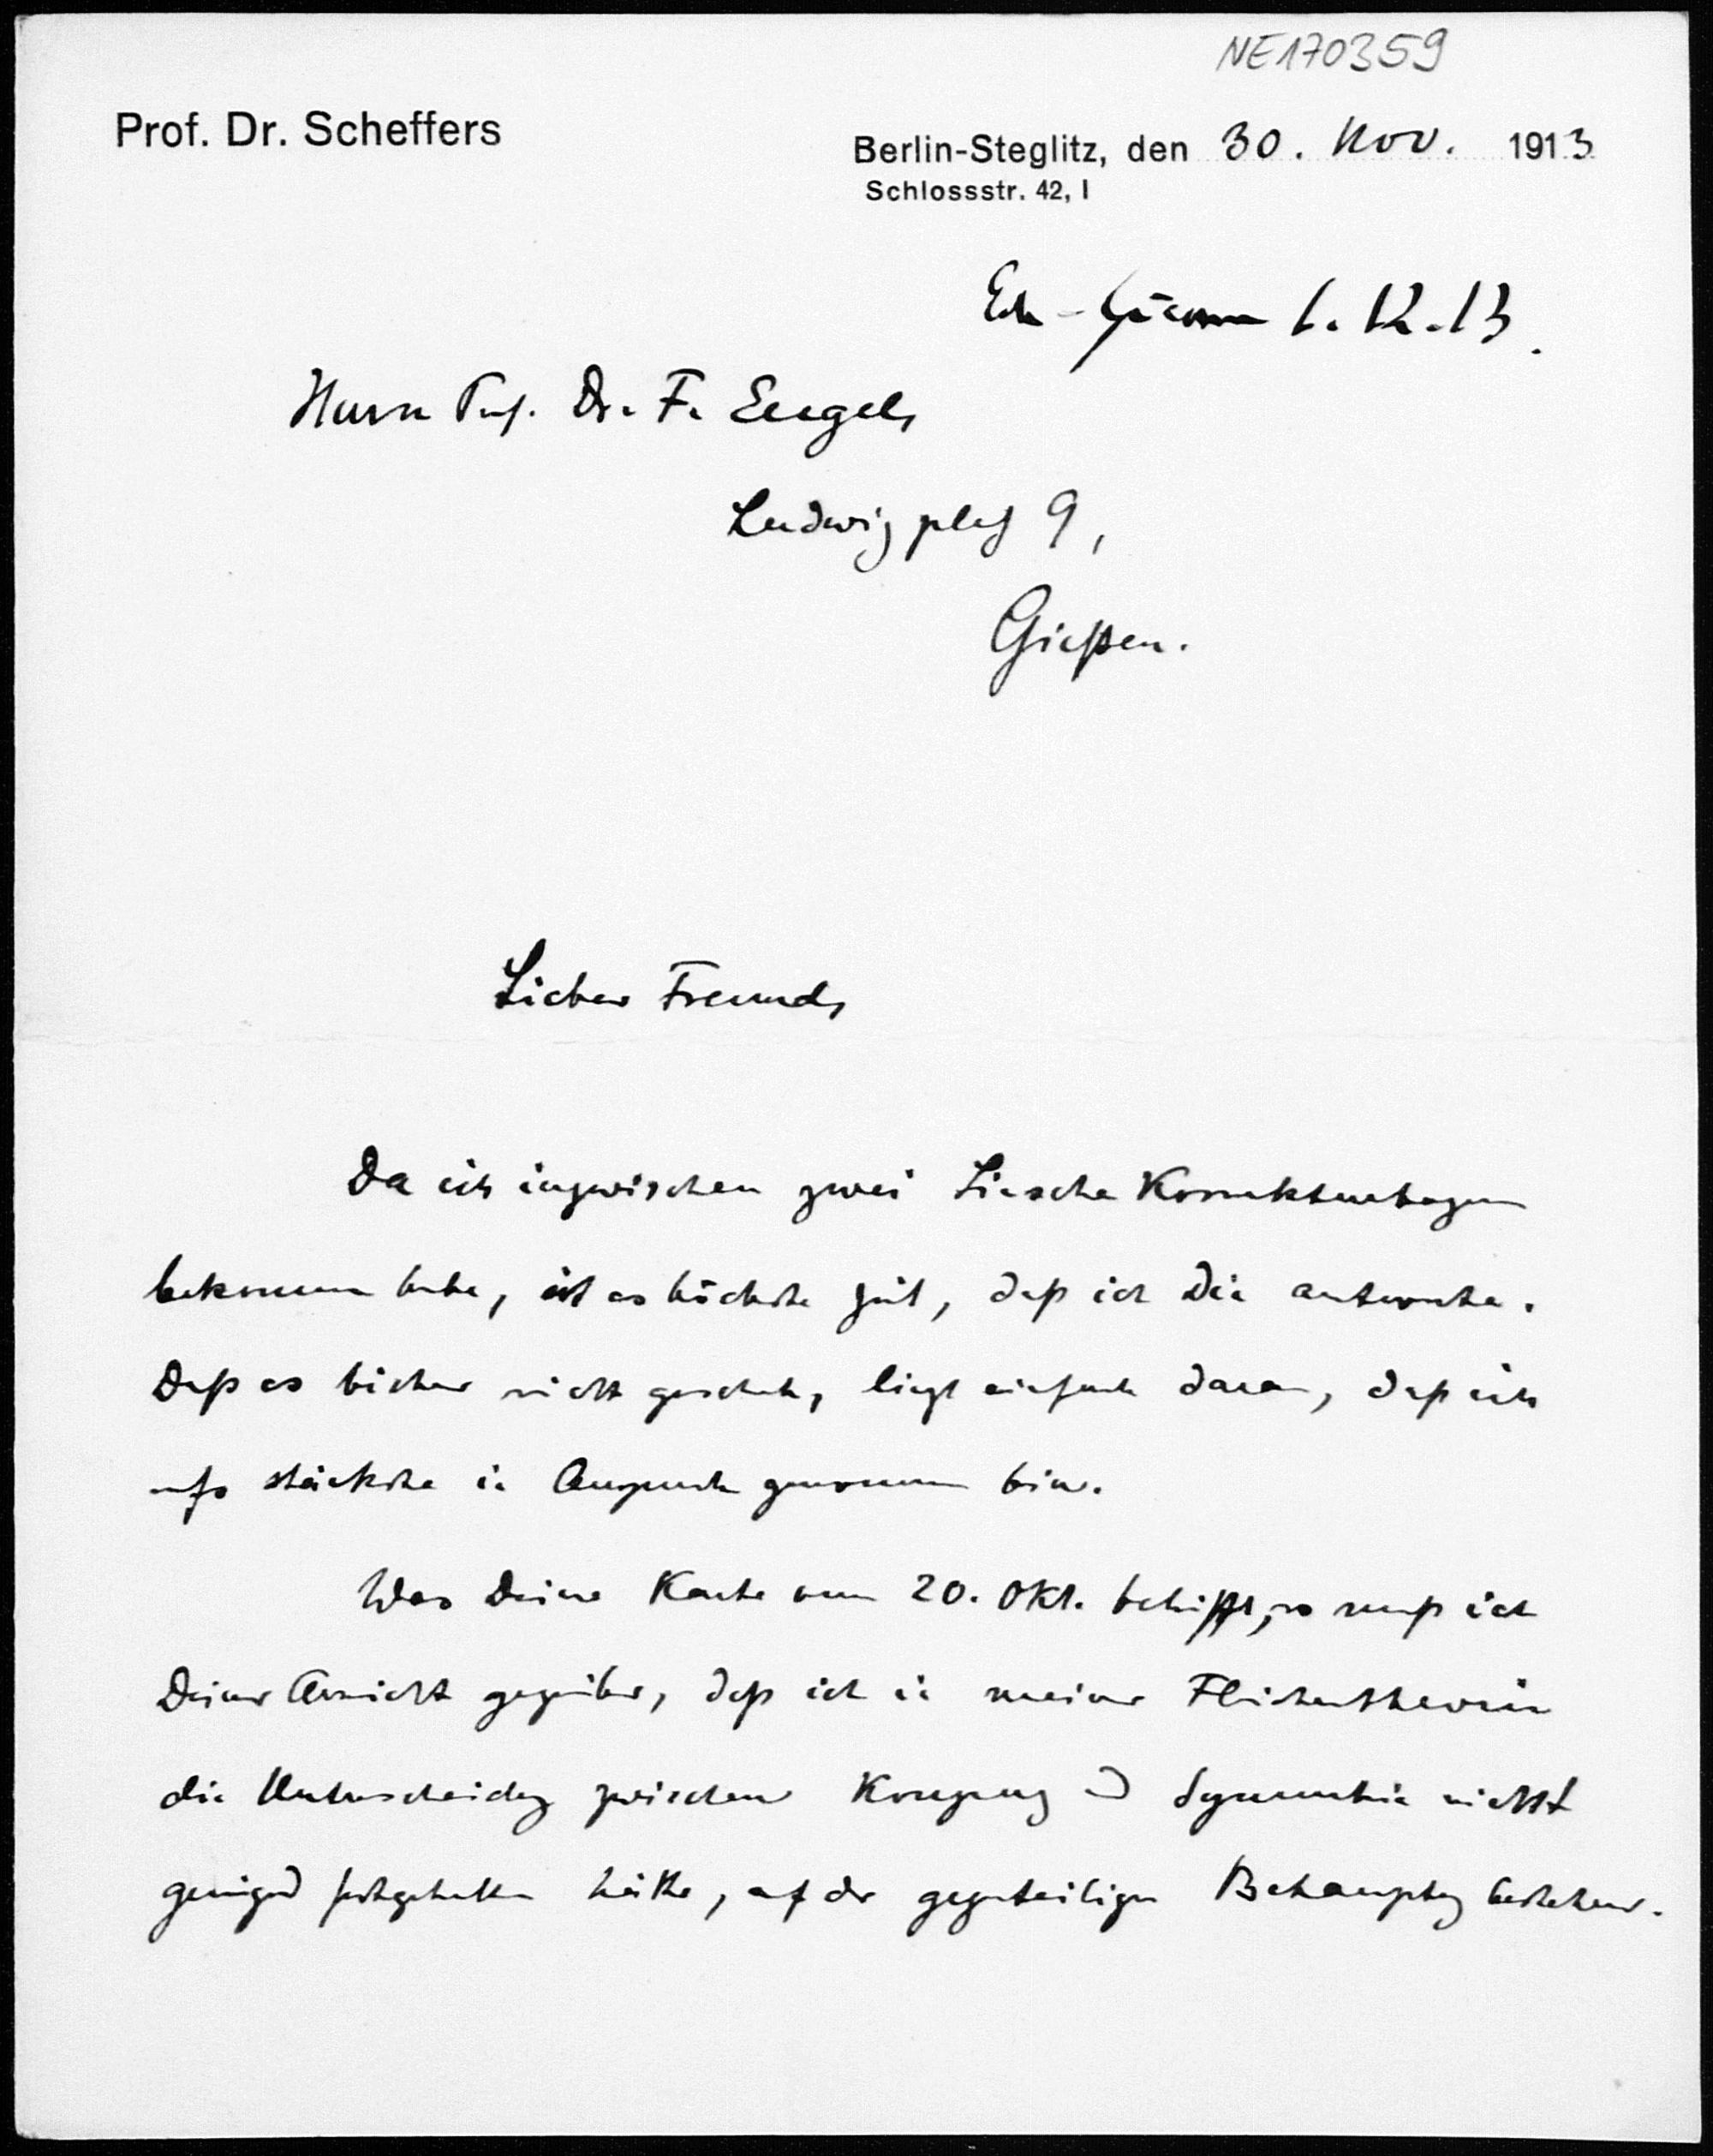 NE170359
Prof. Dr. Scheffers
Berlin-Steglitz, den 30. Nov. 1913
Schlossstr. 42, I
1.12.13.
Herrn Prof. Dr. F. Engel,
Ludwigplatz 9,
Gießen.
Lieber Freund,
Da ich inzwischen zwei Liesche Korrekturbogen
bekommen habe, ist es höchste Zeit, daß ich Dir antworte.
Daß es bisher nicht geschah, liegt einfach daran, daß ich
aufs stärkste in Anspruch genommen bin.
Was Deine Karte vom 20. Okt. betrifft, so muß ich
Deiner Ansicht gegenüber, daß ich in meiner Flächentheorie
die Unterscheidung zwischen Kongruenz und Symmetrie nicht
genügend festgehalten hätte, auf der gegenteiligen Behauptung bestehen.